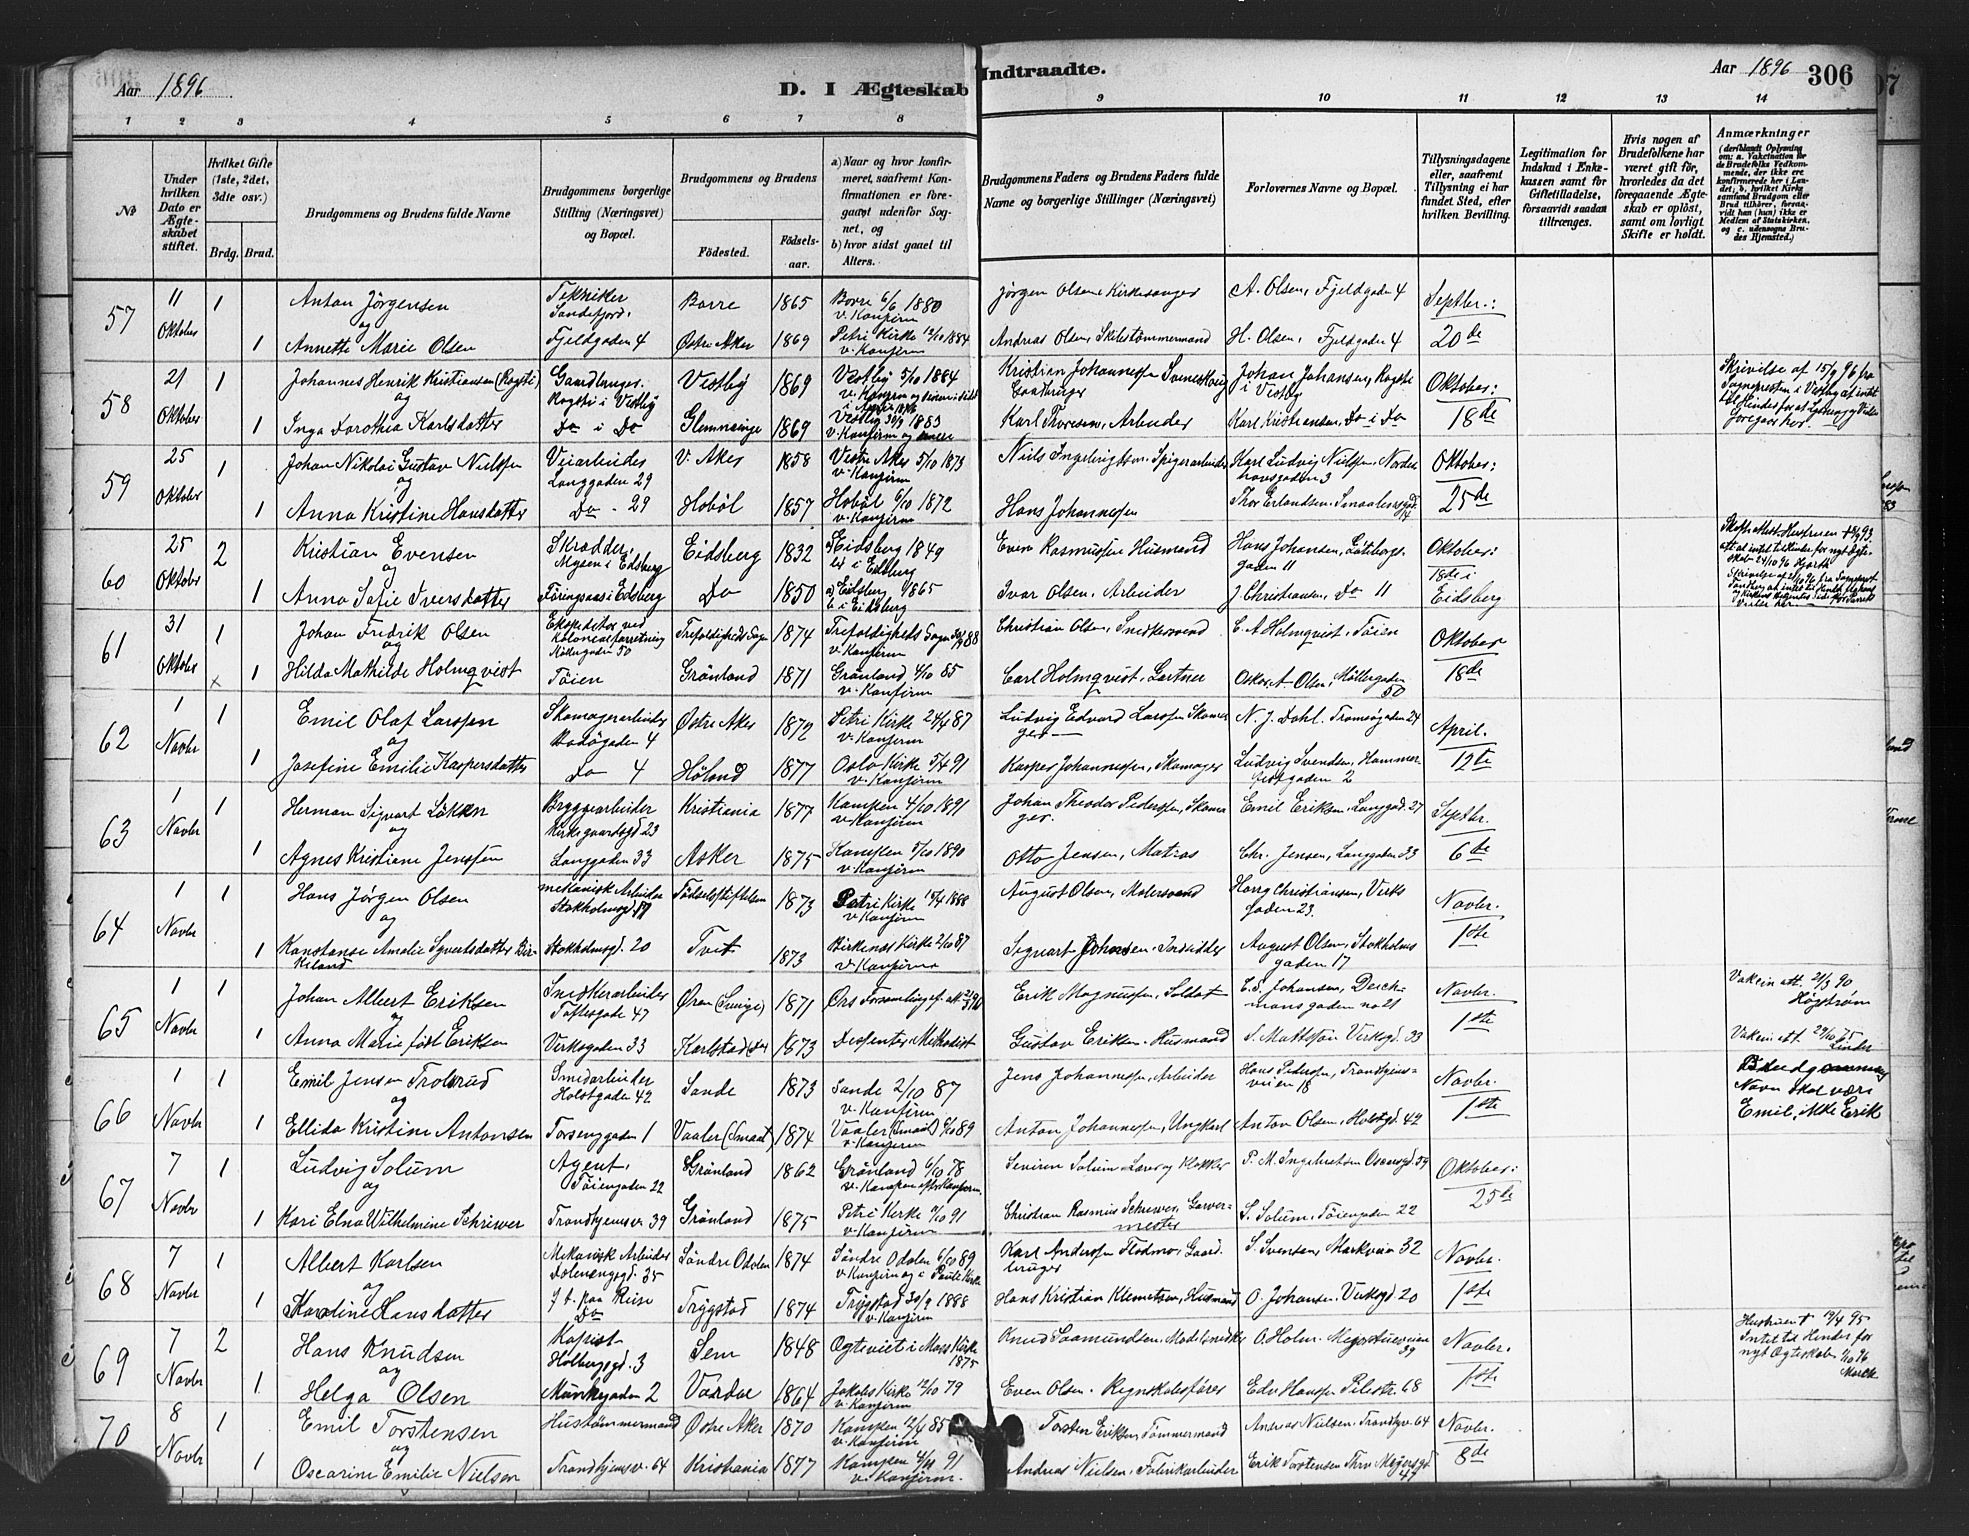 Aar 1896
D. I Ægteskab Indtraadte.
Aar 1896
306
1 2 3 4 5 6 7 8 9 10 11 12 13 14
№
Under hvilken Dato er Ægteskabet stiftet.
Hvilket Gifte (1ste, 2det, 3die osv.)
Brdg. Brud.
Brudgommens og Brudens fulde Navne
Brudgommens borgerlige Stilling (Næringsvei) og Bopæl.
Brudgommens og Brudens
Födested.
Födselsaar.
a) Naar og hvor konfirmeret, saafremt Konfirmationen er foregaaet udenfor Sognet, og
b) hvor sidst gaaet til Alters.
Brudgommens Faders og Brudens Faders fulde Navne og borgerlige Stillinger (Næringsvei)
Forlovernes Navne og Bopæl.
Tillysningsdagene eller, saafremt Tillysning ei har fundet Sted, efter hvilken Bevilling.
Legitimation for Indskud i Enkekassen samt for Giftetilladelse, forsaavidt saadan tiltrænges.
Hvis nogen af Brudefolkene har været gift för, hvorledes da det foregaaende Ægteskab er oplöst, samt om lovligt Skifte er holdt.
Anmærkninger (deriblandt Oplysning om: a. Vakcination for de Brudefolks Vedkommende, der ikke ere konfirmerede her i Landet; b. hvilket Kirkesamfund Brudgom eller Brud tilhörer, forsaavidt han (hun) ikke er Medlem af Statskirken, og c. udensogns Brudes Hjemsted.)
57 11 Oktober 1 Anton Jörgensen Tekniker Sandefjord. Borre 1865 Borre 6/6 1880 v. Konfirm Jörgen Olsen, Kirkesanger A. Olsen, Fjeldgaden 4 Septbr.: 20de
og
1 Annette Marie Olsen Fjeldgaden 4 Östre Aker 1869 Petri Kirke 12/10 1884 v. Konfirm Andreas Olsen, Skibstømmermand H. Olsen, Fjeldgaden 4
58 21 Oktober 1 Johannes Henrik Kristiansen (Rogsti) Gaardbruger. Rogsti i Vestby Vestby 1869 Vestby 5/10 1884 Kristian Johannessen Gaardbruger Johan Johansen, Rogsti i Vestby Oktober: 18de
og
1 Inga Dorothia Karlsdatter Do i Do Glemminge 1869 Vestby 30/9 1883 Karl Thoresen, Arbeider Karl Kristiansen, Do i Do
Skrivelse af 15/9 96 fra Sognepresten i Vestby
59 25 Oktober 1 Johan Nikolai Gustav Nielsen Veiarbeider Langgaden 29 V. Aker 1858 Vestre Aker 5/10 1873 v. Konfirm Niels Ingebrigtsen Spigerarbeider Karl Ludvig Nielsen, Nordenhovsgaden 3 Oktober: 25de
og
1 Anna Kristine Hansdatter Do - 29 Hobøl 1857 Hobøl 6/10 1872 v. Konfirm Hans Johannessen Thor Erlandsen, Smaalensgd. 14
60 25 Oktobr 2 Kristian Evensen Skrædder, Mysen i Edsberg Eidsberg 1832 a) Eidsberg 1849 Even Rasmussen Husmand Hans Johansen, Göteborggaden 11 Oktober: 18de i Eidsberg
og
1 Anna Sofie Iversdatter Do 1850 a) Eidsberg 1865 b i Eidsberg Ivar Olsen, Arbeider J. Christiansen, Do 11
61 31 Oktober 1 Johan Fredrik Olsen Ekspeditør ved Kolonialforretning Möllergaden 50 Trefoldigheds Sogn 1874 Trefoldigheds Sogn v. Konfirm Christian Olsen, Snedkersvend C. A Holmqvist, Töien Oktober 18de
og
1 Hilda Mathilde Holmqvist Töien Grönland 1871 Grönland 4/10 85 v. Konfirm Carl Holmqvist, Gartner Oskar A. Olsen, Möllergaden 50
62 1 Novbr 1 Emil Olaf Larssen Skomagerarbeider Bodögaden 4 Östre Aker 1872 Petri Kirke 24/4 87 v. Konfirm Ludvig Edvard Larssen Skomager N. J. Dahl. Tromsögaden 24 April. 12te
og
1 Josefine Emilie Kaspersdatter Do 4 Höland 1877 Oslo Kirke 5/4 91 v. Konfirm Kasper Johannessen, Skomager Ludvig Svendsen, Hammerstadgaden 2
63 1 Novbr 1 Herman Sigvart Løkken Bryggearbeider Kirkegaardsgd 23 Kristiania 1877 Kampen 4/10 1891 v. Konfirm Johan Theodor Pedersen, Skomager. Emil Eriksen, Langgad. 27 Septbr. 6te
og
1 Agnes Kristiane Jenssen Langgaden 33 Asker 1875 Kampen 5/10 1890 v. Konfirm Otto Jensen, Matros Chr. Jensen, Langgaden 33
64 1 Novbr 1 Hans Jörgen Olsen mekanisk Arbeider Stokholmsgd 17 Födselsstiftelsen 1873 Petri Kirke 15/4 1888 v. Konfirm August Olsen, Malersvend Harry Christiansen, Verksgaden 23. Novbr. 1ste
og
1 Konstanse Amalie Sigvartsdatter Birkeland Stokholmsgd. 20 Tveit 1873 Birkenæs Kirke 2/10 87 v. Konfirm Sigvart Johnsen Indsidder August Olsen, Stokholmsgaden 17
65 1 Novbr 1 Johan Albert Eriksen Snedkerarbeider Toftesgade 47 Øren (Sverige) 1871 Erik Magnusson, Soldat C. S. Johansen, Deichmansgaden Novbr. 1ste
og
1 Anna Marie født Eriksen Verksgaden 33 Karlstad (Do) 1873 Dissenter, Methodist Gustav Eriksen. Husmand S. Mattsson Verksgd. 33
Vakcin att. 21/3 90 Högström
Vakcin att 29/10 75 Linder
66 1 Novbr 1 Emil Jensen Trolsrud Smedarbeider Holstgaden 42 Sande 1873 Sande 2/10 87 v. Konfirm. Jens Johannessen, Arbeider Hans Pedersen, Trondhjemsveien 18 Novbr. 1ste
og
1 Ellida Kristine Antonsen Torvenggaden 1 Vaaler (Smaal) 1874 Vaaler (Smaal) 6/10 89 v. Konfirm Anton Johannessen, Ungkarl Anton Olsen, Holstgd. 42
Brudgommens Navn skal være Emil, ikke Erik
67 7 Novbr 1 Ludvig Solum Agent, Töiengaden 22 Grönland 1862 Grönland 6/10 78 Severin Solum Lærer og Klokker P. M. Ingebretsen Oscarsgd. 59 Oktober: 25de
og
1 Kari Elna Wilhelmine Schriwer Trondhjemsv. 39 Grönland 1875 Petri Kirke 4/10 91 v. Konfirm Christian Rasmus Schriwer, Garvermester S. Solum, Töiengaden 22
68 7 Novbr 1 Albert Karlsen Mekanisk Arbeider Dælenenggd. 35 Söndre Odalen 1874 Söndre Odalen 6/10 89 v. Konfirm og i Pauls Kirke Karl Andersen Flodmo, Gaardbruger S. Svensen, Markveien 32 Novbr. 1ste
og
1 Karoline Hansdatter f. t. paa Reise Do Trygstad 1874 Trygstad 30/9 1888 v. Konfirm Hans Kristian Klemetsen, Husmand O. Johansen Verksgd 20
69 7 Novbr 2 Hans Knudsen Kopist Holbergsgd. 3 Sem 1848 Ogteviet i Moss Kirke 1875 Knud Saamundsen. Modelsnedker O. Holm. Meyerstueveien 39 Novbr. 1ste
og
1 Helga Olsen Munkegaden 2 Vardø 1864 Jakobs Kirke 12/10 79 v. Konfirm Even Olsen. Regnskabsförer Edv Hansen Pilestr. 68
Hustruen † 19/4 95 Intet til Hinder for nyt Ægteskab
70 8 Novbr 1 Emil Torstensen Hustömmermand Östre Aker 1870 Kampen 12/4 85 v. Konfirm Torsten Eriksen, Tömmermand Andreas Nielsen. Trondhjv. 64 Novbr. 8de
og
1 Oscarine Emilie Nielsen Trondhjemsv. 64 Kristiania 1877 Kampen 91 v. Konfirm. Andreas Nielsen, Erik Torstensen Thrv Meyersgd.